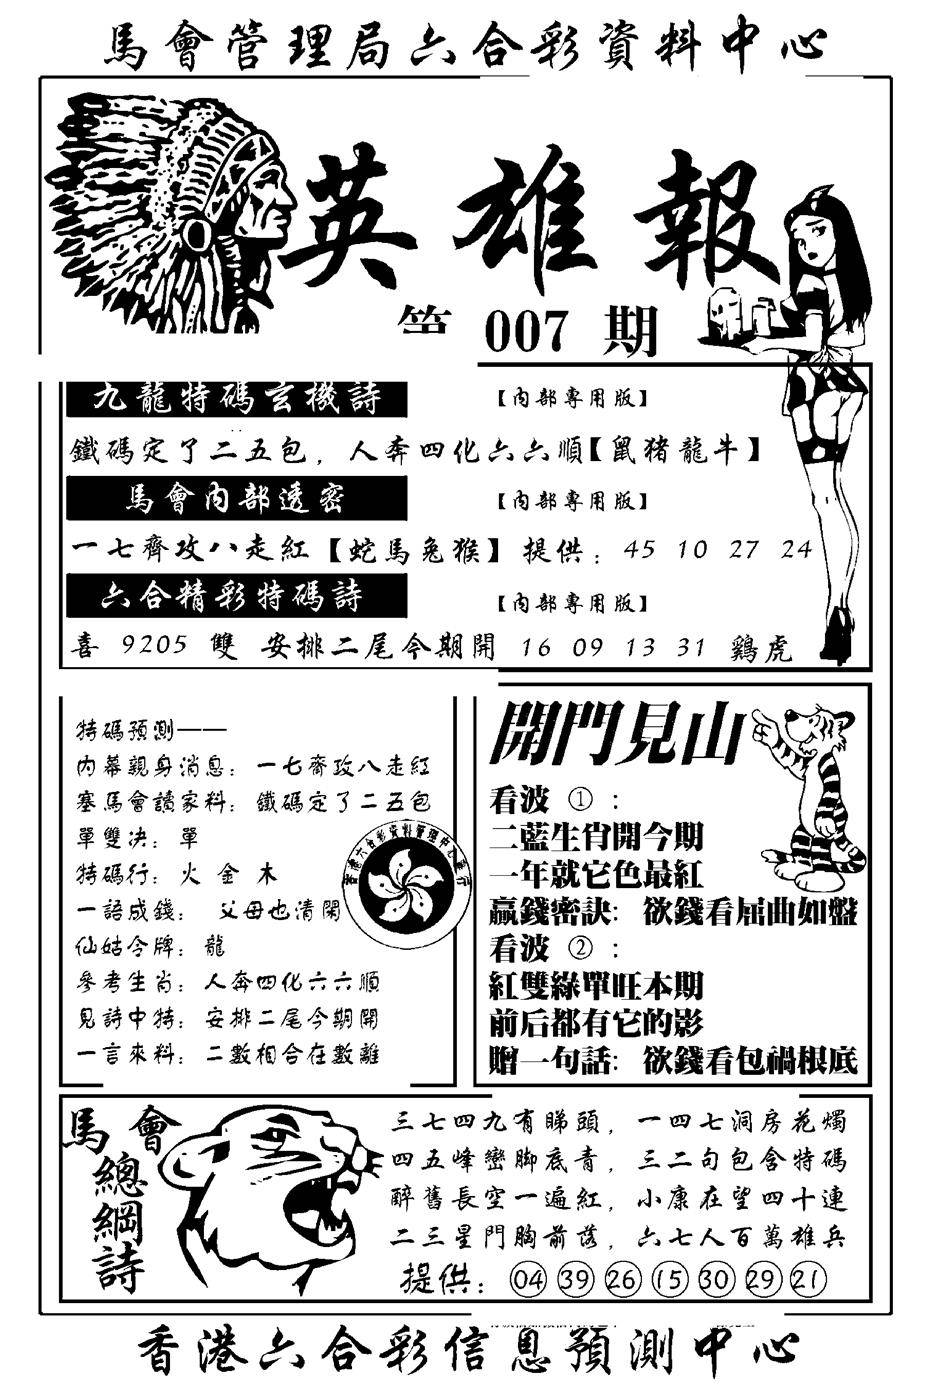 馬會管理局六合彩資料中心
英雄報
第 007 期
九龍特碼玄機詩 【内部專用版】
鐵碼定了二五包，人奔四化六六順【鼠猪龍牛】
馬會内部透密 【内部專用版】
一七齊攻八走紅【蛇馬兔猴】 提供：45 10 27 24
六合精彩特碼詩 【内部專用版】
喜 9205 雙 安排二尾今期開 16 09 13 31 鷄虎
特碼預測——
内幕親身消息：一七齊攻八走紅
塞馬會讀家料：鐵碼定了二五包
單雙决：單
特碼行：火 金 木
一語成錢： 父母也清閑
仙姑令牌：龍
參考生肖：人奔四化六六順
見詩中特：安排二尾今期開
一言來料：二數相合在數離
香港六合彩資料管理中心發行
開門見山
看波 ①：
二藍生肖開今期
一年就它色最紅
贏錢密訣：欲錢看屈曲如盤
看波 ②：
紅雙綠單旺本期
前后都有它的影
贈一句話：欲錢看包禍根底
馬會
總綱詩
三七四九有睇頭，一四七洞房花燭
四五峰巒脚底青，三二句包含特碼
醉舊長空一遍紅，小康在望四十連
二三星門胸前落，六七人百萬雄兵
提供：04 39 26 15 30 29 21
香港六合彩信息預測中心